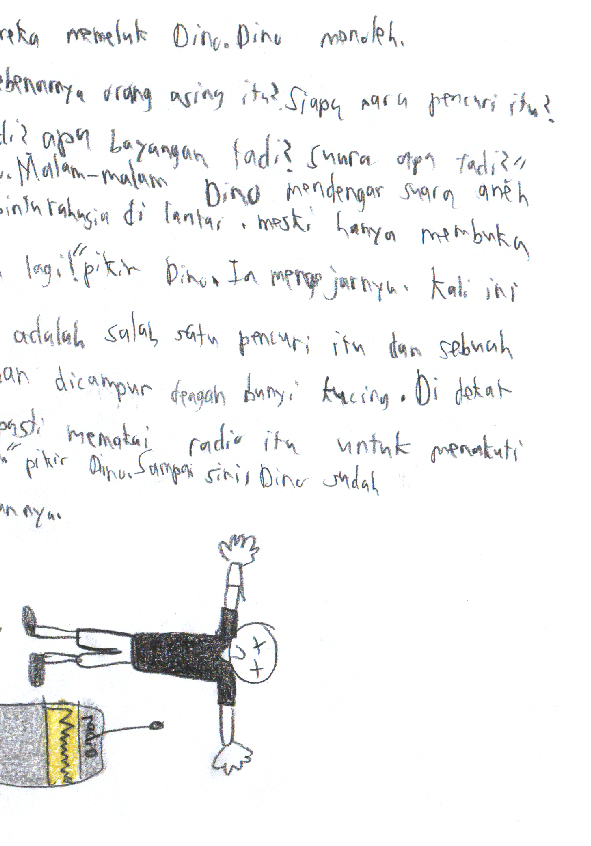 reka memeluk Dino. Dino menoleh.
ebenarnya orang asing itu? Siapa para pencuri itu?
di? apa bayangan tadi? suara apa tadi?"
. Malam-malam Dino mendengar suara aneh
pintu rahasia di lantai. meski hanya membuka
lagi!" pikir Dino. Ia mengejarnya. kali ini
adalah salah satu pencuri itu dan sebuah
an dicampur dengan bunyi kucing. Di dekat
pasti memakai radio itu untuk menakuti
" pikir Dino. Sampai sini, Dino sudah
annya.
radio